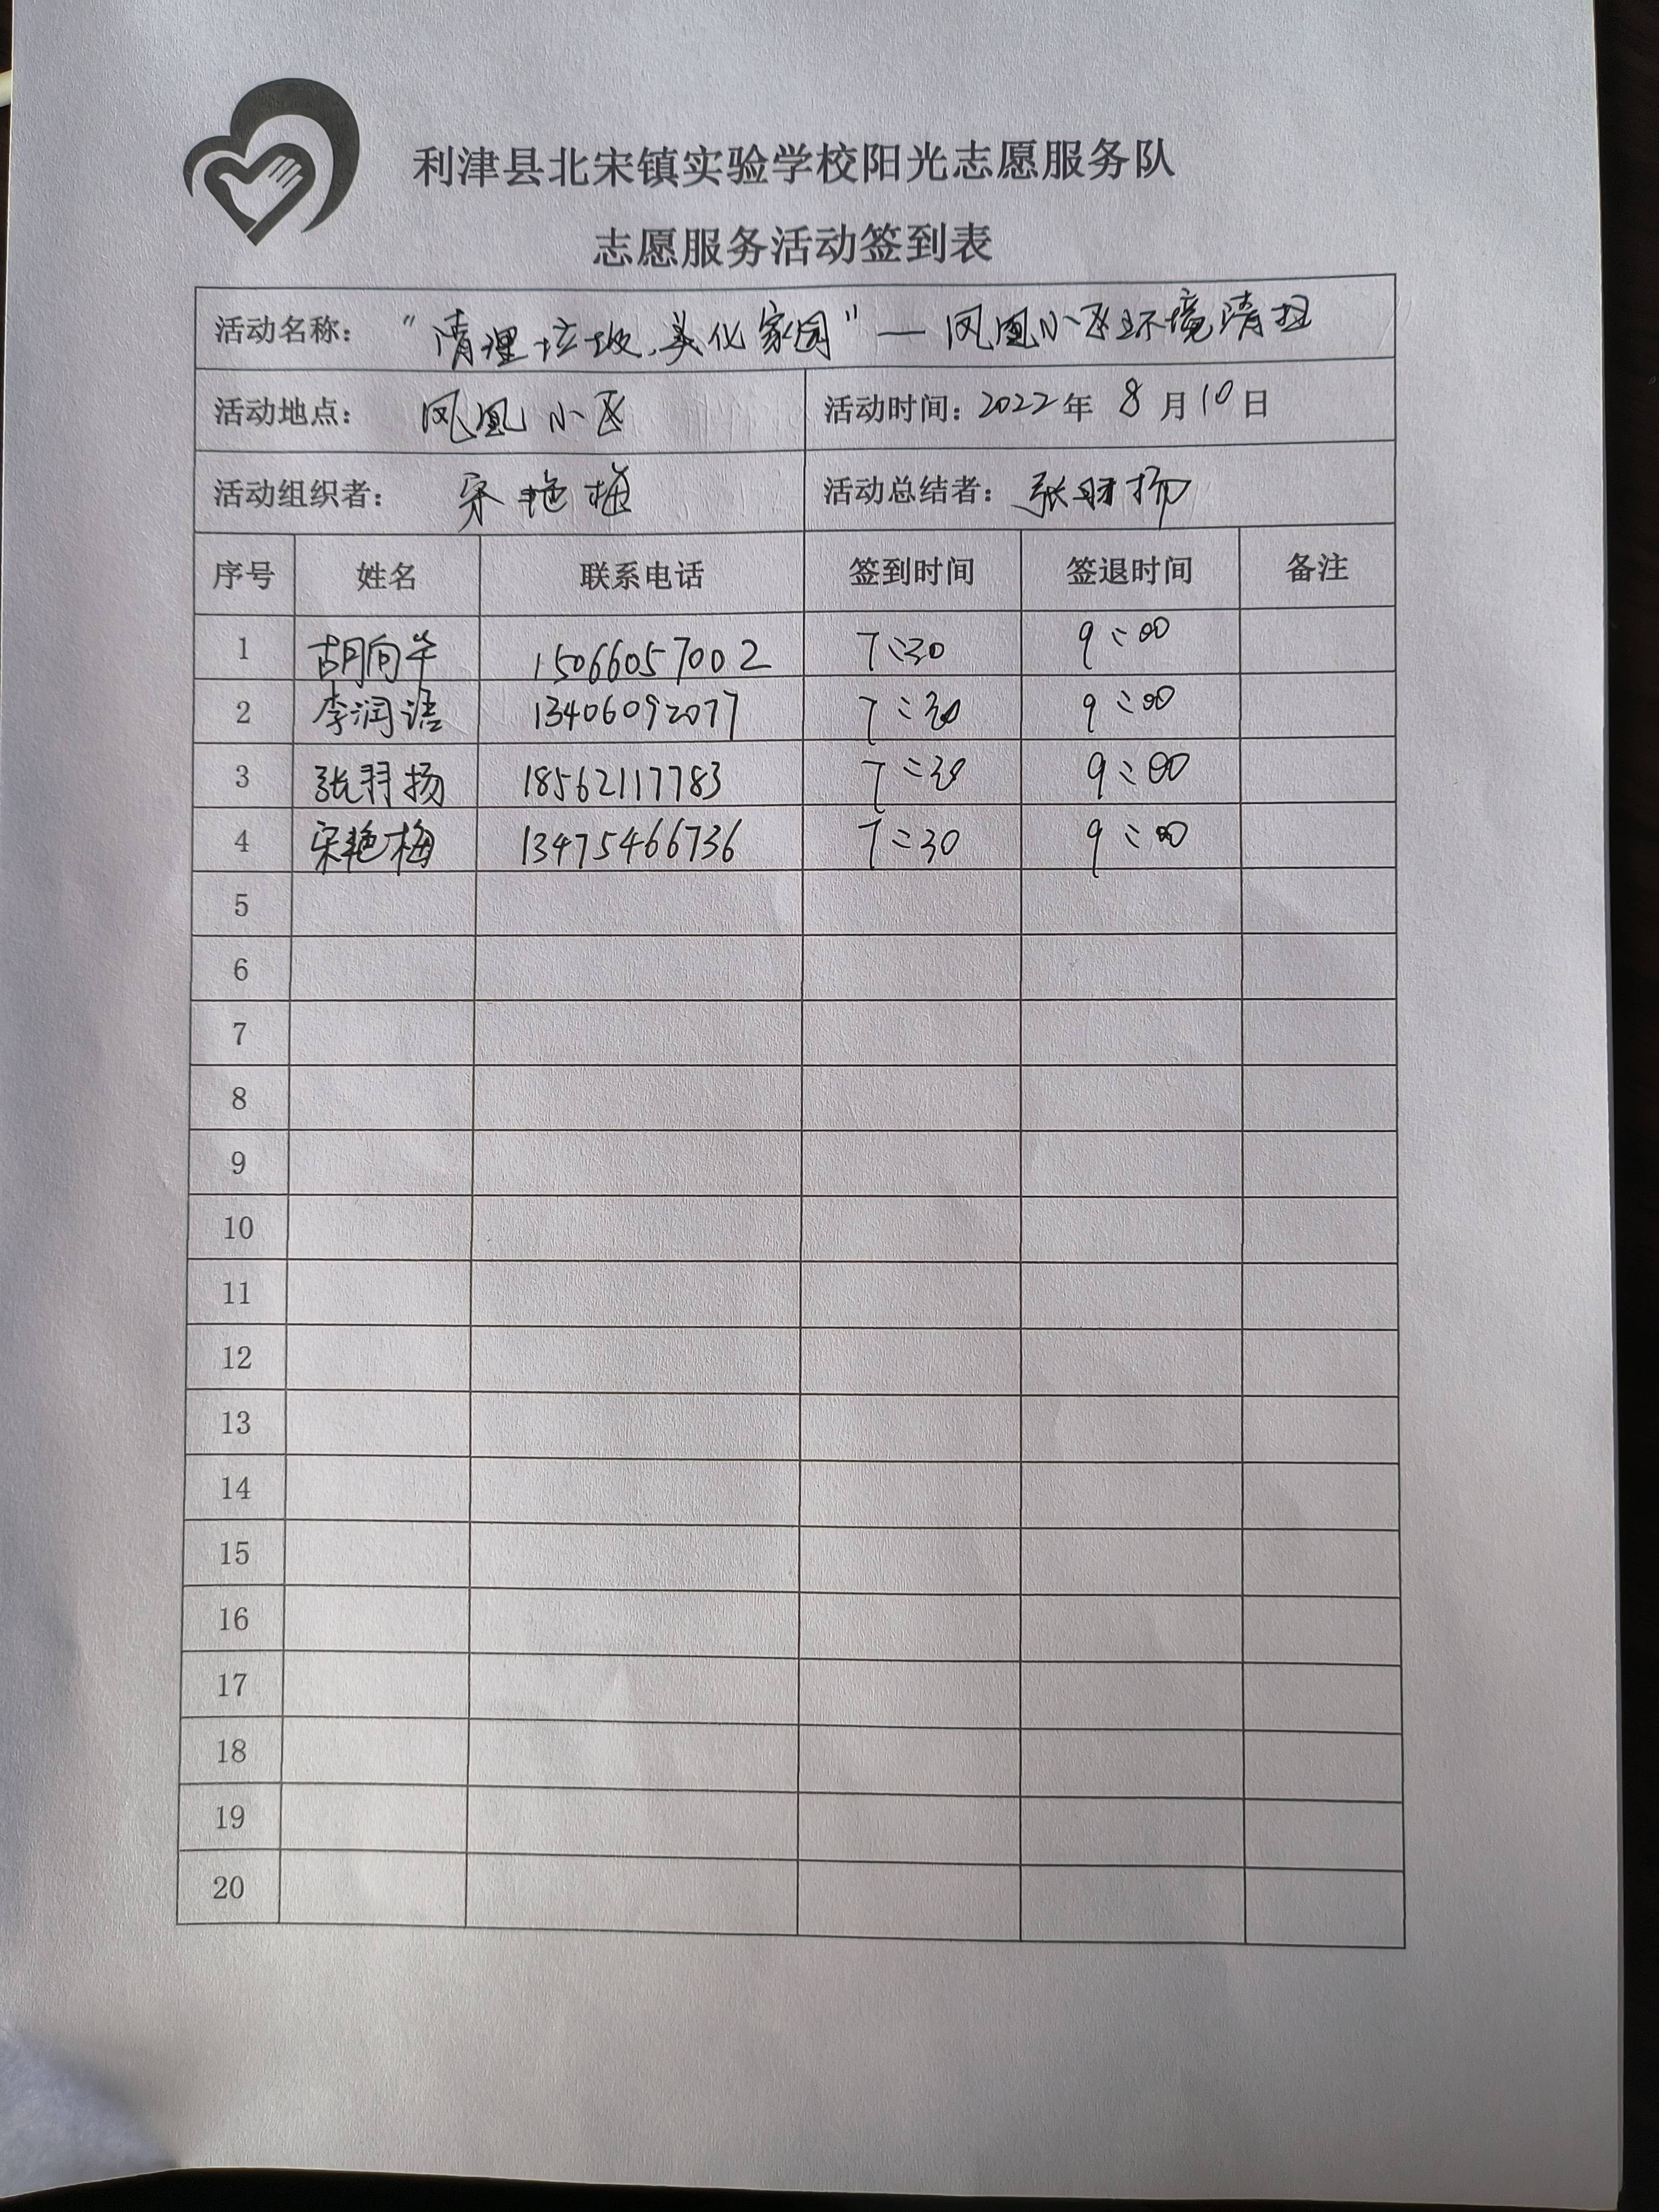 利津县北宋镇实验学校阳光志愿服务队
志愿服务活动签到表
活动名称： “清理垃圾、美化家园”—凤凰小区环境清扫
活动地点： 凤凰小区 活动时间：2022年 8月10日
活动组织者： 宋艳梅 活动总结者：张羽扬
序号 姓名 联系电话 签到时间 签退时间 备注
1 胡向华 15066057002 7:30 9:00
2 李润语 13406092077 7:30 9:00
3 张羽扬 18562117783 7:30 9:00
4 宋艳梅 13475466736 7:30 9:00
5
6
7
8
9
10
11
12
13
14
15
16
17
18
19
20